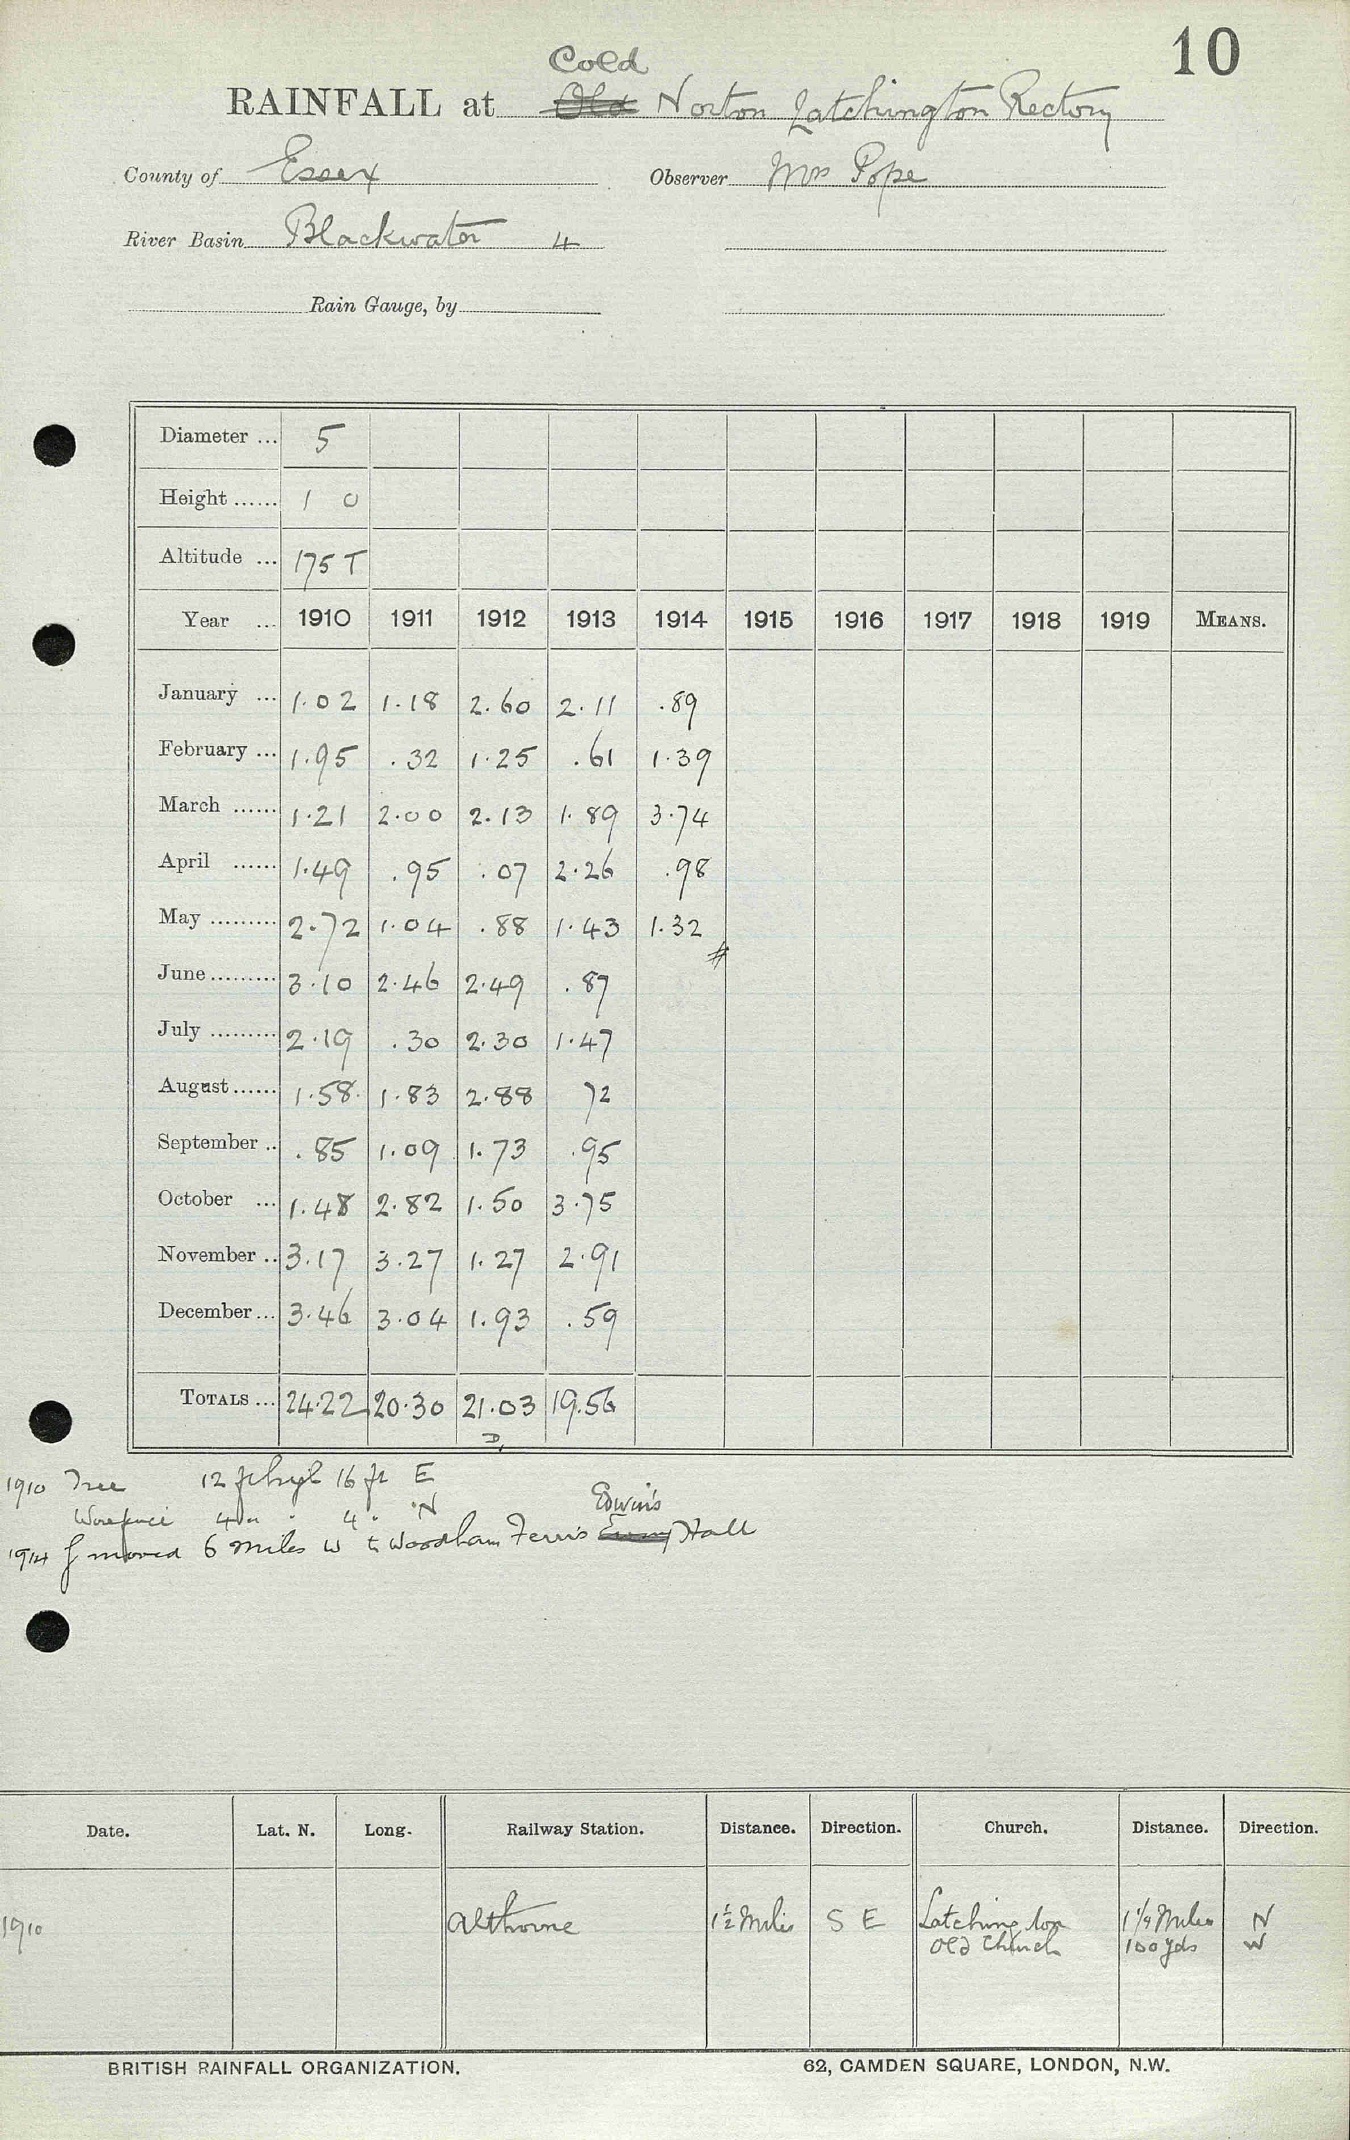 10
Cold
RAINFALL at Old Norton Latchington Rectory
County of Essex Observer Mrs Pope
River Basin Blackwater 4
Rain Gauge, by
Diameter ... 5
Height ...... 1 0
Altitude ... 175 T
Year ... 1910 1911 1912 1913 1914 1915 1916 1917 1918 1919 MEANS.
January ... 1.02 1.18 2.60 2.11 .89
February ... 1.95 .32 1.25 .61 1.39
March ...... 1.21 2.00 2.13 1.89 3.74
April ...... 1.49 .95 .07 2.26 .98
May ......... 2.72 1.04 .88 1.43 1.32
#
June ......... 3.10 2.46 2.49 .87
July ......... 2.19 .30 2.30 1.47
August ...... 1.58 1.83 2.88 72
September .. .85 1.09 1.73 .95
October ... 1.48 2.82 1.50 3.75
November .. 3.17 3.27 1.27 2.91
December ... 3.46 3.04 1.93 .59
TOTALS ... 24.22 20.30 21.03 19.56
D
1910 Tree 12 ft high 16 ft E
4 " 4 " N
Edwin's
1914 g moved 6 miles W to Woodham Ferris Hall
Date. Lat. N. Long. Railway Station. Distance. Direction. Church. Distance. Direction.
1910 Althorne 1½ Miles S E Latchington 1¼ Miles N
Old Church 100 yds W
BRITISH RAINFALL ORGANIZATION. 62, CAMDEN SQUARE, LONDON, N.W.